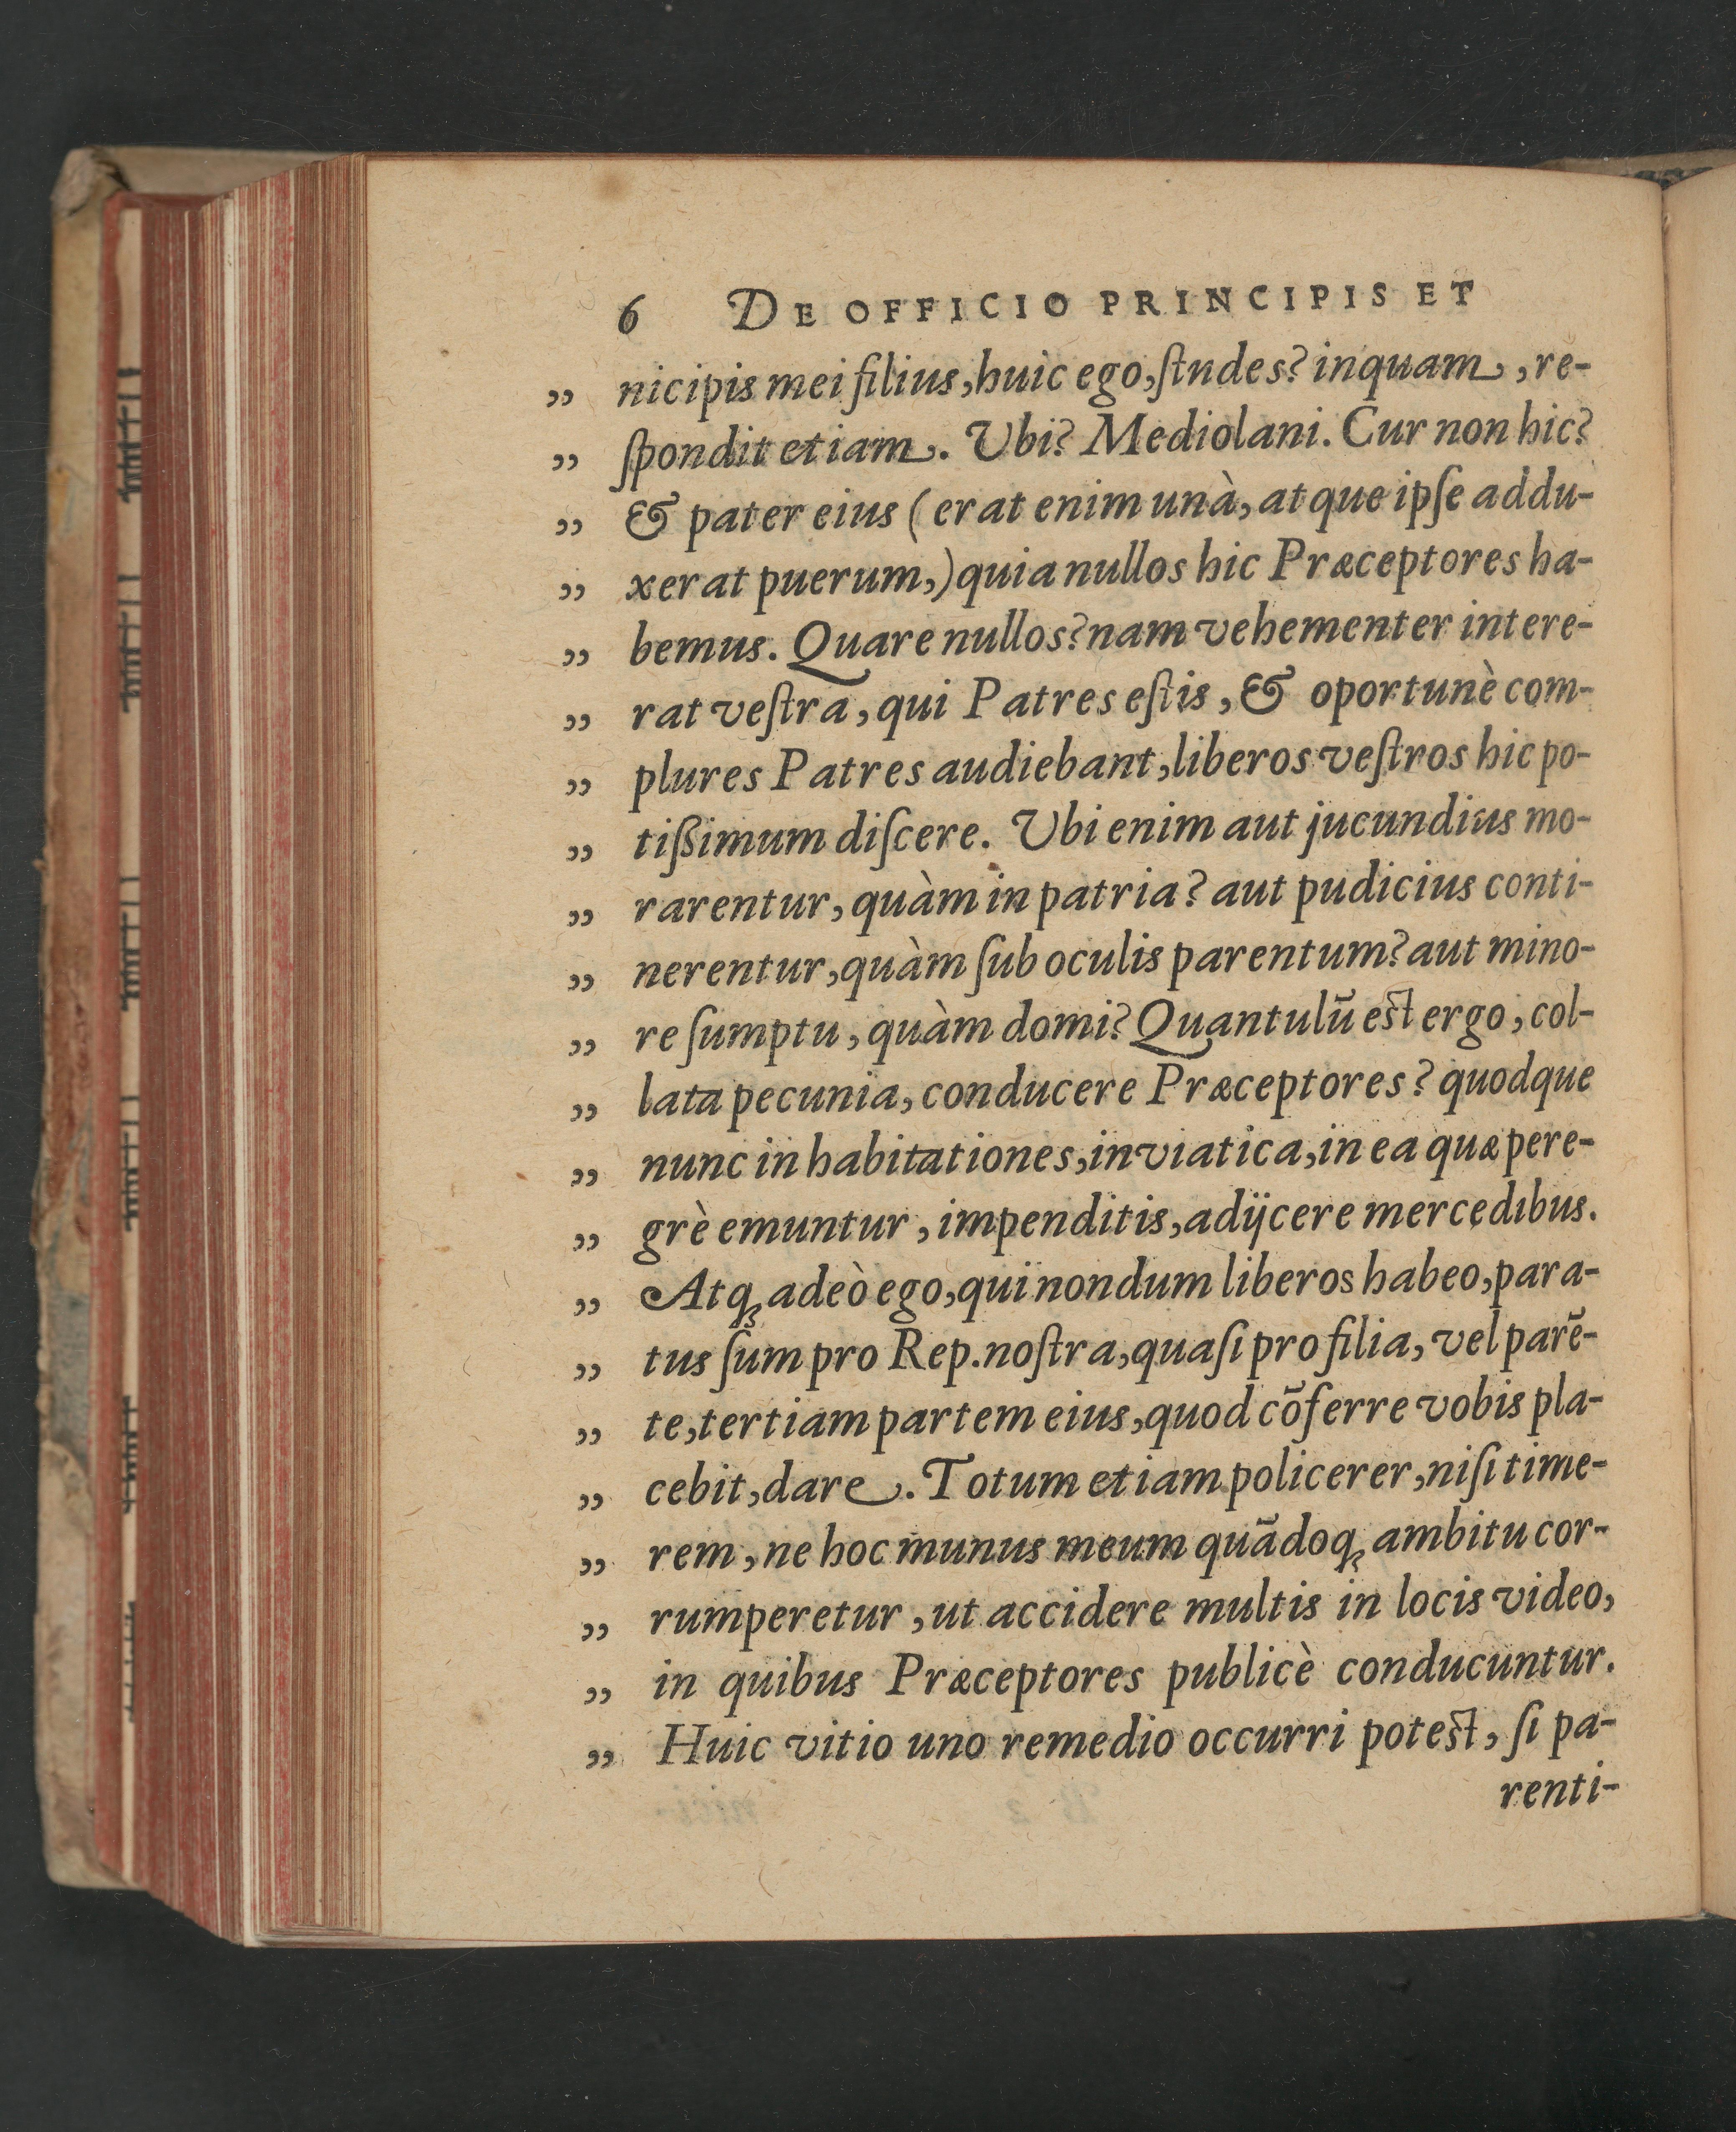 6 DE OFFICIO PRINCIPIS ET
„ nicipis mei filius, huic ego, ſtudes? inquam, re-
„ ſpondit etiam. Ubi? Mediolani. Cur non hic?
„ & pater eius (erat enim unà, atque ipſe addu-
„ xerat puerum,) quia nullos hic Præceptores ha-
„ bemus. Quare nullos? nam vehementer intere-
„ rat veſtra, qui Patres eſtis, & oportunè com-
„ plures Patres audiebant, liberos veſtros hic po-
„ tißimum diſcere. Ubi enim aut jucundius mo-
„ rarentur, quàm in patria? aut pudicius conti-
„ nerentur, quàm ſub oculis parentum? aut mino-
„ re ſumptu, quàm domi? Quantulū eſt ergo, col-
„ lata pecunia, conducere Præceptores? quodque
„ nunc in habitationes, in viatica, in ea quæ pere-
„ grè emuntur, impenditis, adijcere mercedibus.
„ Atq; adeò ego, qui nondum liberos habeo, para-
„ tus ſum pro Rep. noſtra, quaſi pro filia, vel parē-
„ te, tertiam partem eius, quod cōferre vobis pla-
„ cebit, dare. Totum etiam policerer, niſi time-
„ rem, ne hoc munus meum quādoq; ambitu cor-
„ rumperetur, ut accidere multis in locis video,
„ in quibus Præceptores publicè conducuntur.
„ Huic vitio uno remedio occurri poteſt, ſi pa-
renti-